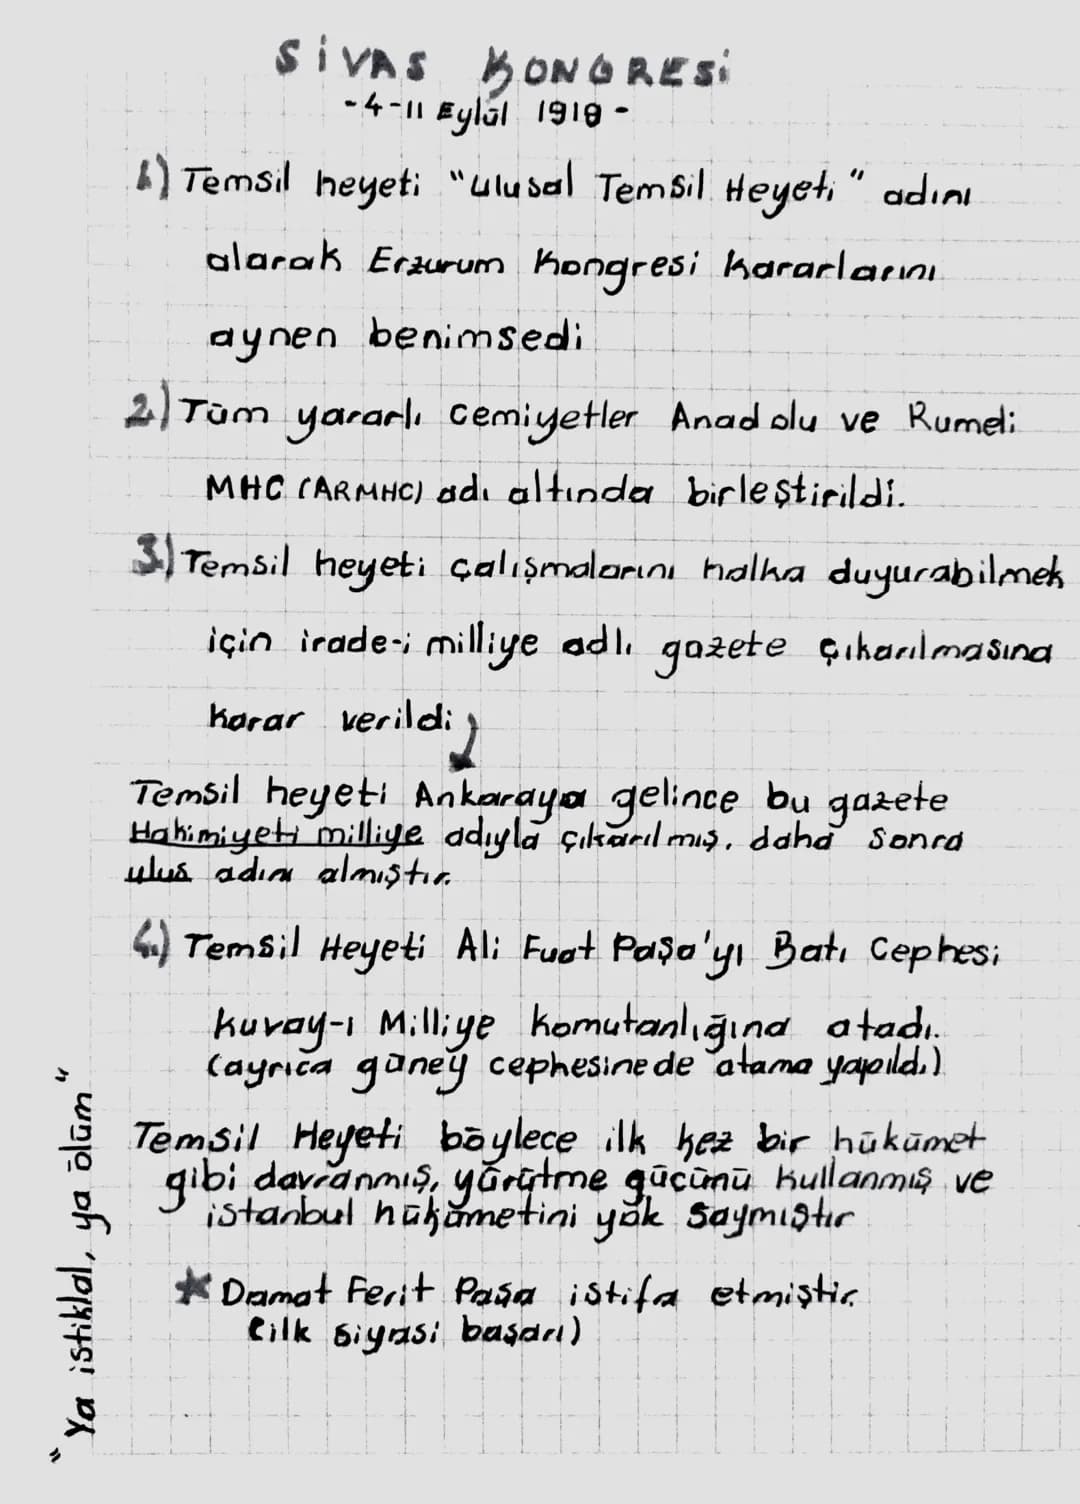 SİVAS KONGRESİ
-4-11 Eylül 1919-
1) Temsil heyeti "ulusal Temsil Heyeti" adını
alarak Erzurum Kongresi kararlarını
aynen benimsedi
2) Tüm yararlı cemiyetler Anadolu ve Rumeli
MHC (ARMHC) adı altında birleştirildi.
3) Temsil heyeti çalışmalarını halka duyurabilmek
için irade-i milliye adlı gazete çıkarılmasına
karar verildi
Temsil heyeti Ankaraya gelince bu gazete
Hakimiyeti milliye adıyla çıkarılmış, daha sonra
ulus adını almıştır.
4.) Temsil Heyeti Ali Fuat Paşa'yı Batı Cephesi
kuvay-ı Milliye komutanlığına atadı.
(ayrıca güney cephesinede atama yapıldı)
Temsil Heyeti böylece ilk kez bir hükümet
gibi davranmış, yürütme gücünü kullanmış ve
istanbul hükümetini yok saymıştır
* Damat Ferit Paşa istifa etmiştir.
(ilk siyasi başarı)
"Ya istiklal, ya ölüm"